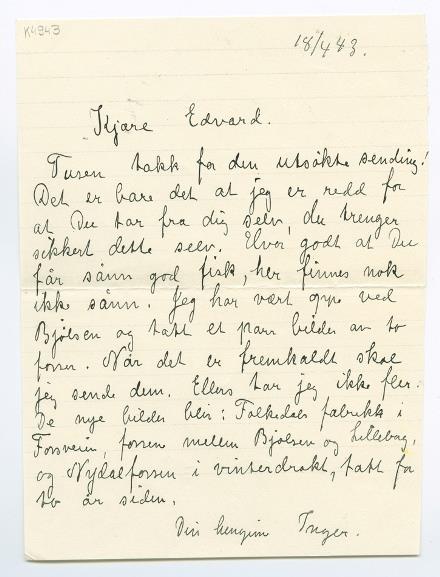 K4943
18/4 43.
Kjære Edvard.
Tusen takk for den utsøkte sending!
Det er bare det at jeg er redd for
at Du tar fra dig selv, du trenger
sikkert dette selv. Hvor godt at Du
får sånn god fisk, her finnes nok
ikke sånn. Jeg har vært oppe ved
Bjølsen og tatt et par bilder av to
fosser. Når det er fremkaldt skal
jeg sende dem. Ellers tar jeg ikke fler.
De nye bilder blir: Falkedals fabrikk i
Fossveien, fossen mellem Bjølsen og Lilleborg,
og Nydalsfossen i vinterdrakt, tatt for
to år siden.
Din hengivne Inger.